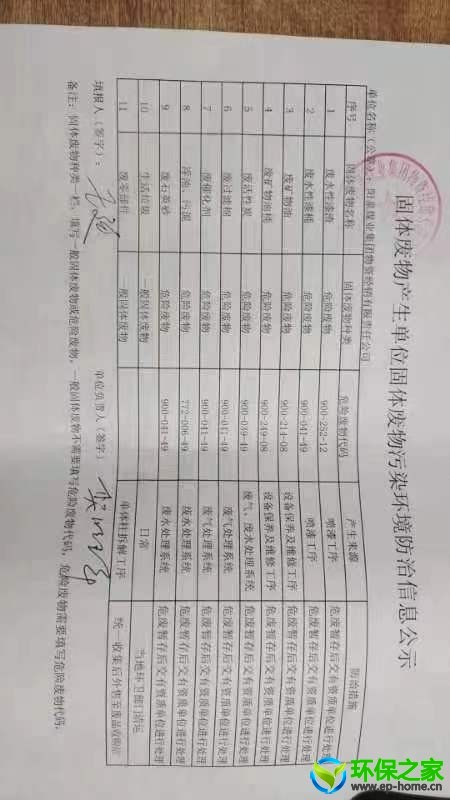 固体废物产生单位固体废物污染环境防治信息公示
单位名称(公章):阳泉煤业集团物资经销有限责任公司
序号 固体废物名称 固体废物种类 危险废物代码 产生来源 防治措施
1 废水性漆渣 危险废物 900-252-12 喷漆工序 危废暂存后交有资质单位进行处理
2 废水性漆桶 危险废物 900-041-49 喷漆工序 危废暂存后交有资质单位进行处理
3 废矿物油 危险废物 900-214-08 设备保养及维修工序 危废暂存后交有资质单位进行处理
4 废矿物油桶 危险废物 900-249-08 设备保养及维修工序 危废暂存后交有资质单位进行处理
5 废活性炭 危险废物 900-039-49 废气、废水处理系统 危废暂存后交有资质单位进行处理
6 废过滤棉 危险废物 900-041-49 废气处理系统 危废暂存后交有资质单位进行处理
7 废催化剂 危险废物 900-041-49 废气处理系统 危废暂存后交有资质单位进行处理
8 浮油、污泥 危险废物 772-006-49 废水处理系统 危废暂存后交有资质单位进行处理
9 废石英砂 危险废物 900-041-49 废水处理系统 危废暂存后交有资质单位进行处理
10 生活垃圾 一般固体废物 日常 当地环卫部门清运
11 废零部件 一般固体废物 单体柱拆解工序 统一收集后外售至废品收购站
填报人(签字): 单位负责人(签字)
备注:固体废物种类一栏,填写一般固体废物或危险废物,一般固体废物不需要填写危险废物代码,危险废物需要填写危险废物代码.
环保之家
www.ep-home.cn